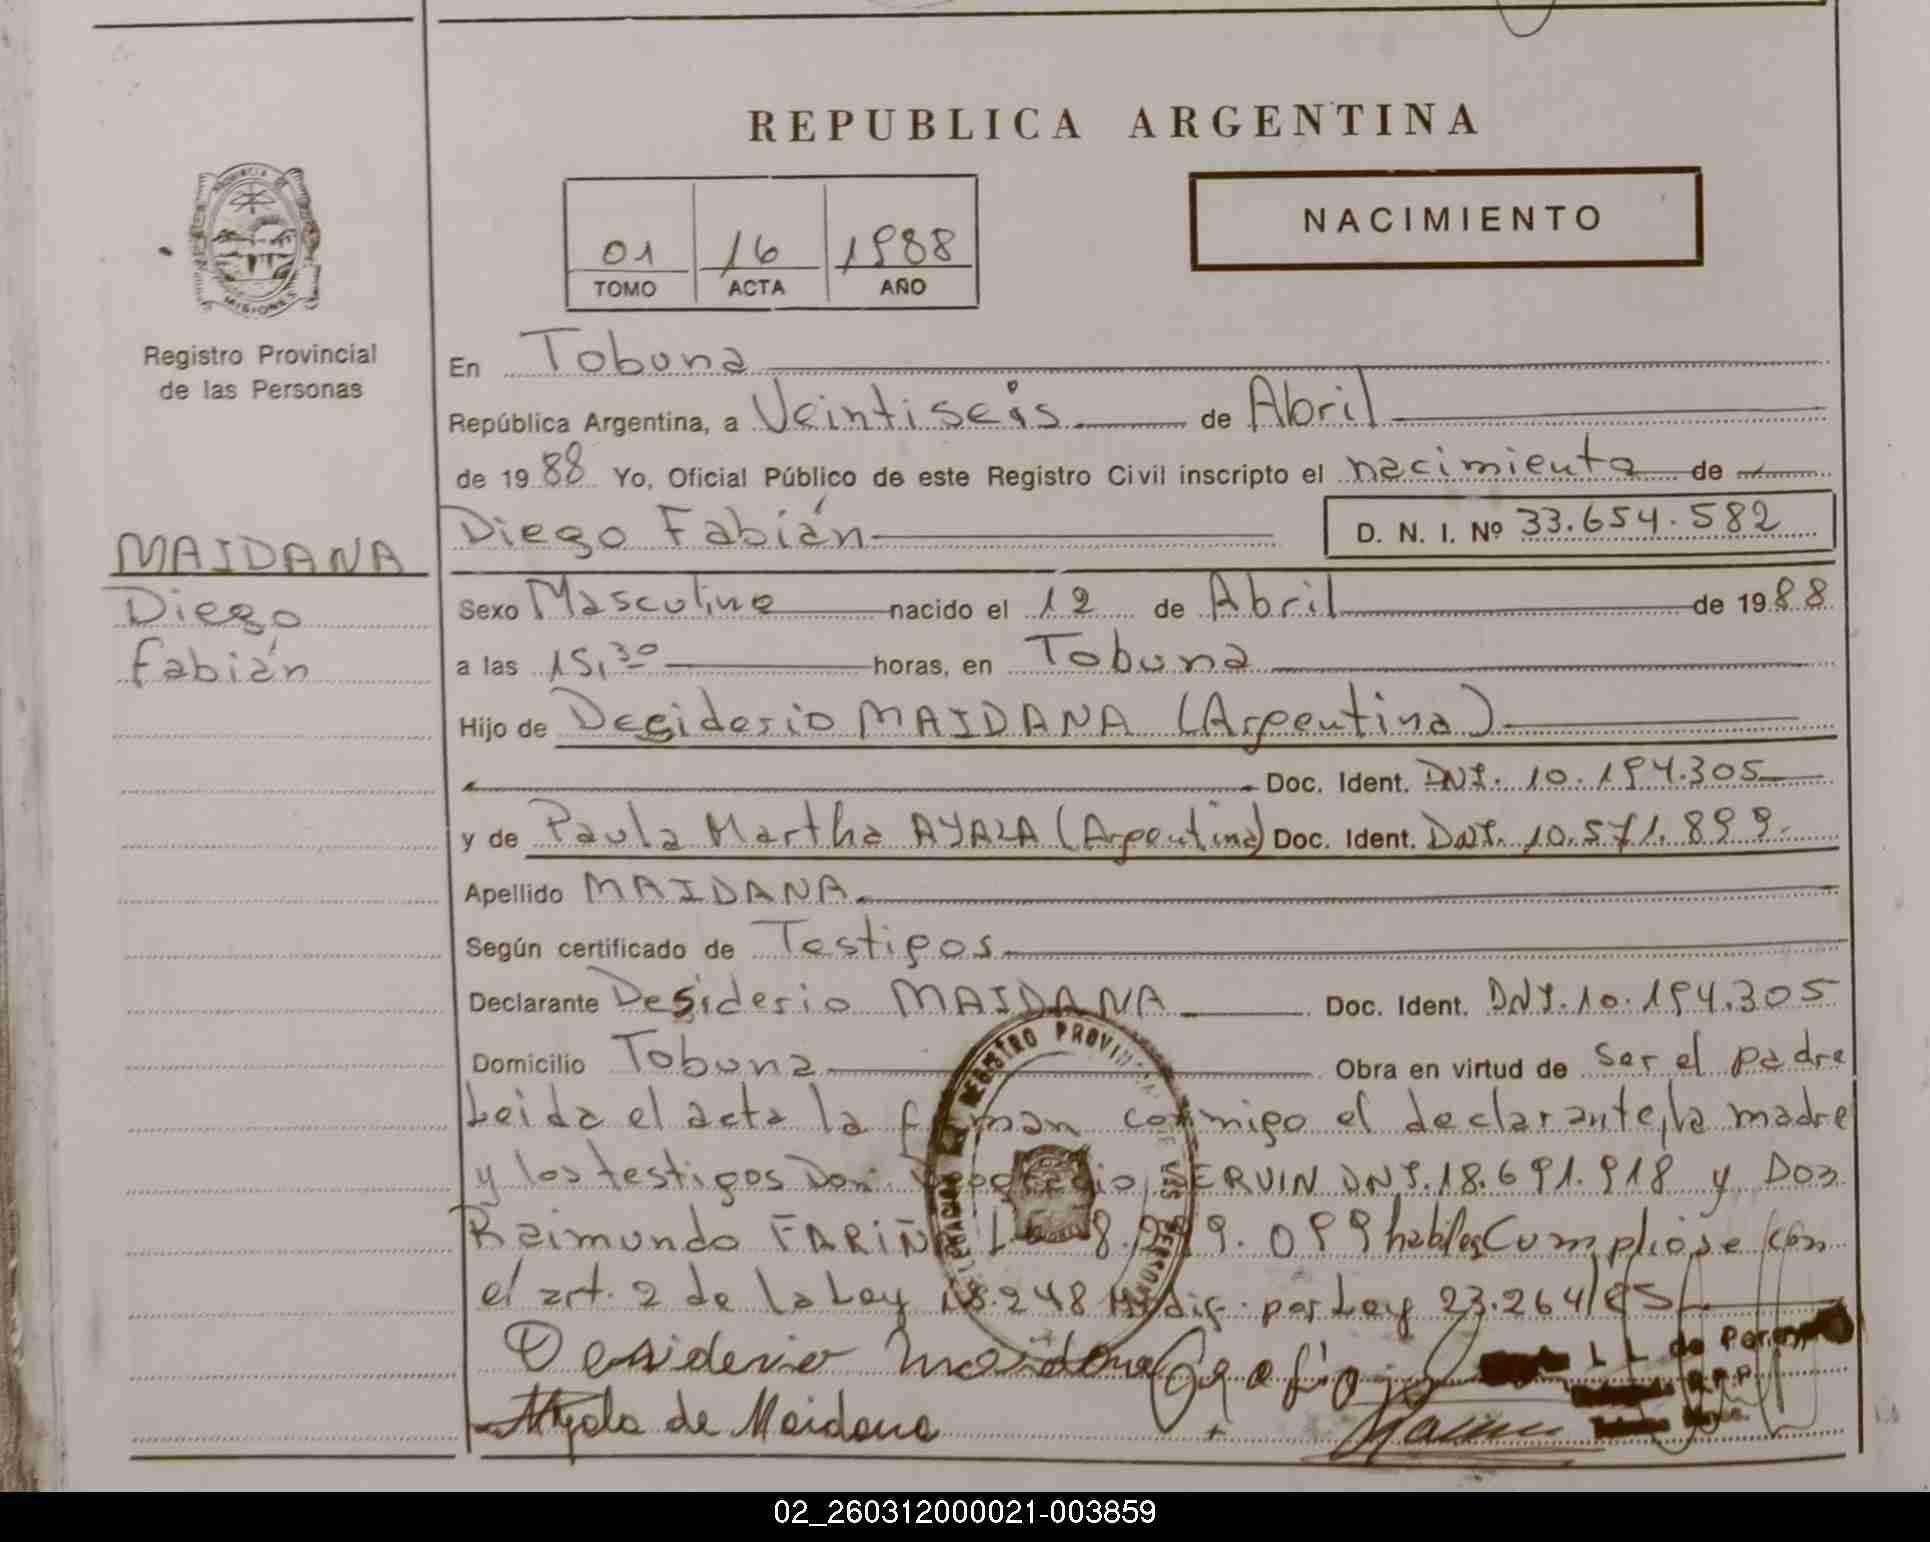 REPUBLICA ARGENTINA
PROVINCIA DE
MISIONES
Registro Provincial
de las Personas
01 16 1988
TOMO ACTA AÑO
NACIMIENTO
En Tobuna
República Argentina, a Veintiseis de Abril
de 19 88 Yo, Oficial Público de este Registro Civil inscripto el nacimiento de
Diego Fabián D. N. I. Nº 33.654.582
MAIDANA
Diego
Fabián
Sexo Masculino nacido el 12 de Abril de 19 88
a las 15,30 horas, en Tobuna
Hijo de Desiderio MAIDANA (Argentina)
Doc. Ident. DNI. 10.194.305
y de Paula Martha AYALA (Argentina) Doc. Ident. DNI. 10.571.899
Apellido MAIDANA
Según certificado de Testigos
Declarante Desiderio MAIDANA Doc. Ident. DNI. 10.194.305
Domicilio Tobuna Obra en virtud de ser el padre
Leida el acta la firman conmigo el declarante, la madre
y los testigos Don ERVIN DNI. 18.691.918 y Don
Raimundo FARIÑA 099 habiles Cumpliose con
el art. 2 de la Ley 18.248 Modif. por Ley 23.264/85
REGISTRO PROVINCIAL
Desiderio Maidana
Ayala de Maidana
02_260312000021-003859